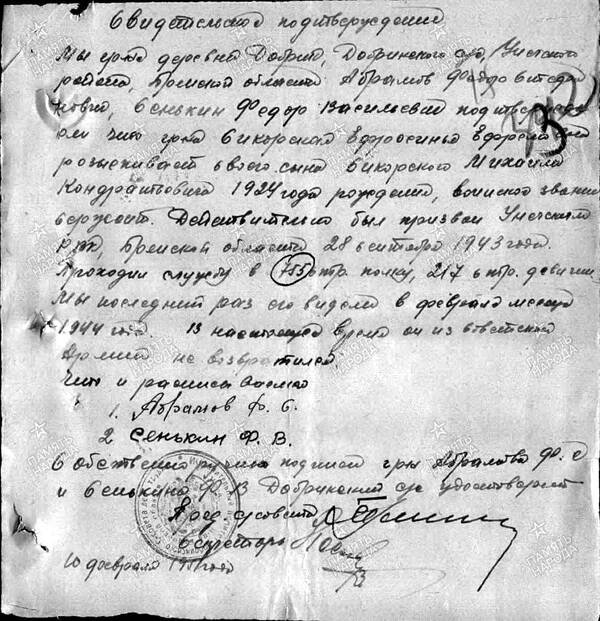 Свидетельское подтверждение
Мы гр-не деревни Добрик, Добрикского с/с, Унечского
района, Брянской области Абрамов Федор
Сенькин Федор Васильевич
что гр-ка Сикорская Ефросинья
розыскивает своего сына Сикорского Михаила
Кондратьевича 1924 года рождения, воинское звание
сержант. Действительно был призван Унечским
РВК, Брянской области 28 сентября 1943 года.
Проходил службу в 755 стр. полку, 217 стр. дивизии
Мы последний раз его видели в феврале месяце
1944 года В настоящее время он из советской
Армии не возвратился
В чем и расписываемся
1. Абрамов Ф. С.
2 Сенькин Ф. В.
Собственноручные подписи гр-н Абрамова Ф. С
и Сенькина Ф. В Добрикский с/с удостоверяет
Пред с/совета
Секретарь
10 февраля
ПАМЯТЬ НАРОДА